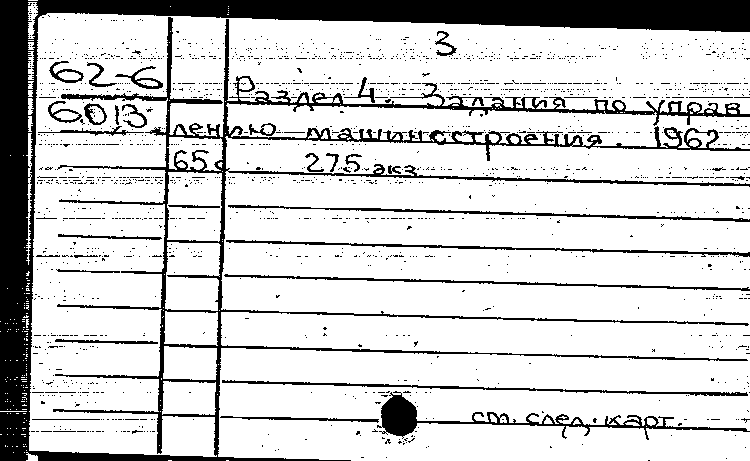 3
62-6
6.013
Раздел 4. Задания по управ
лению машиностроения. 1962
65с. 275 экз
см. след. карт.